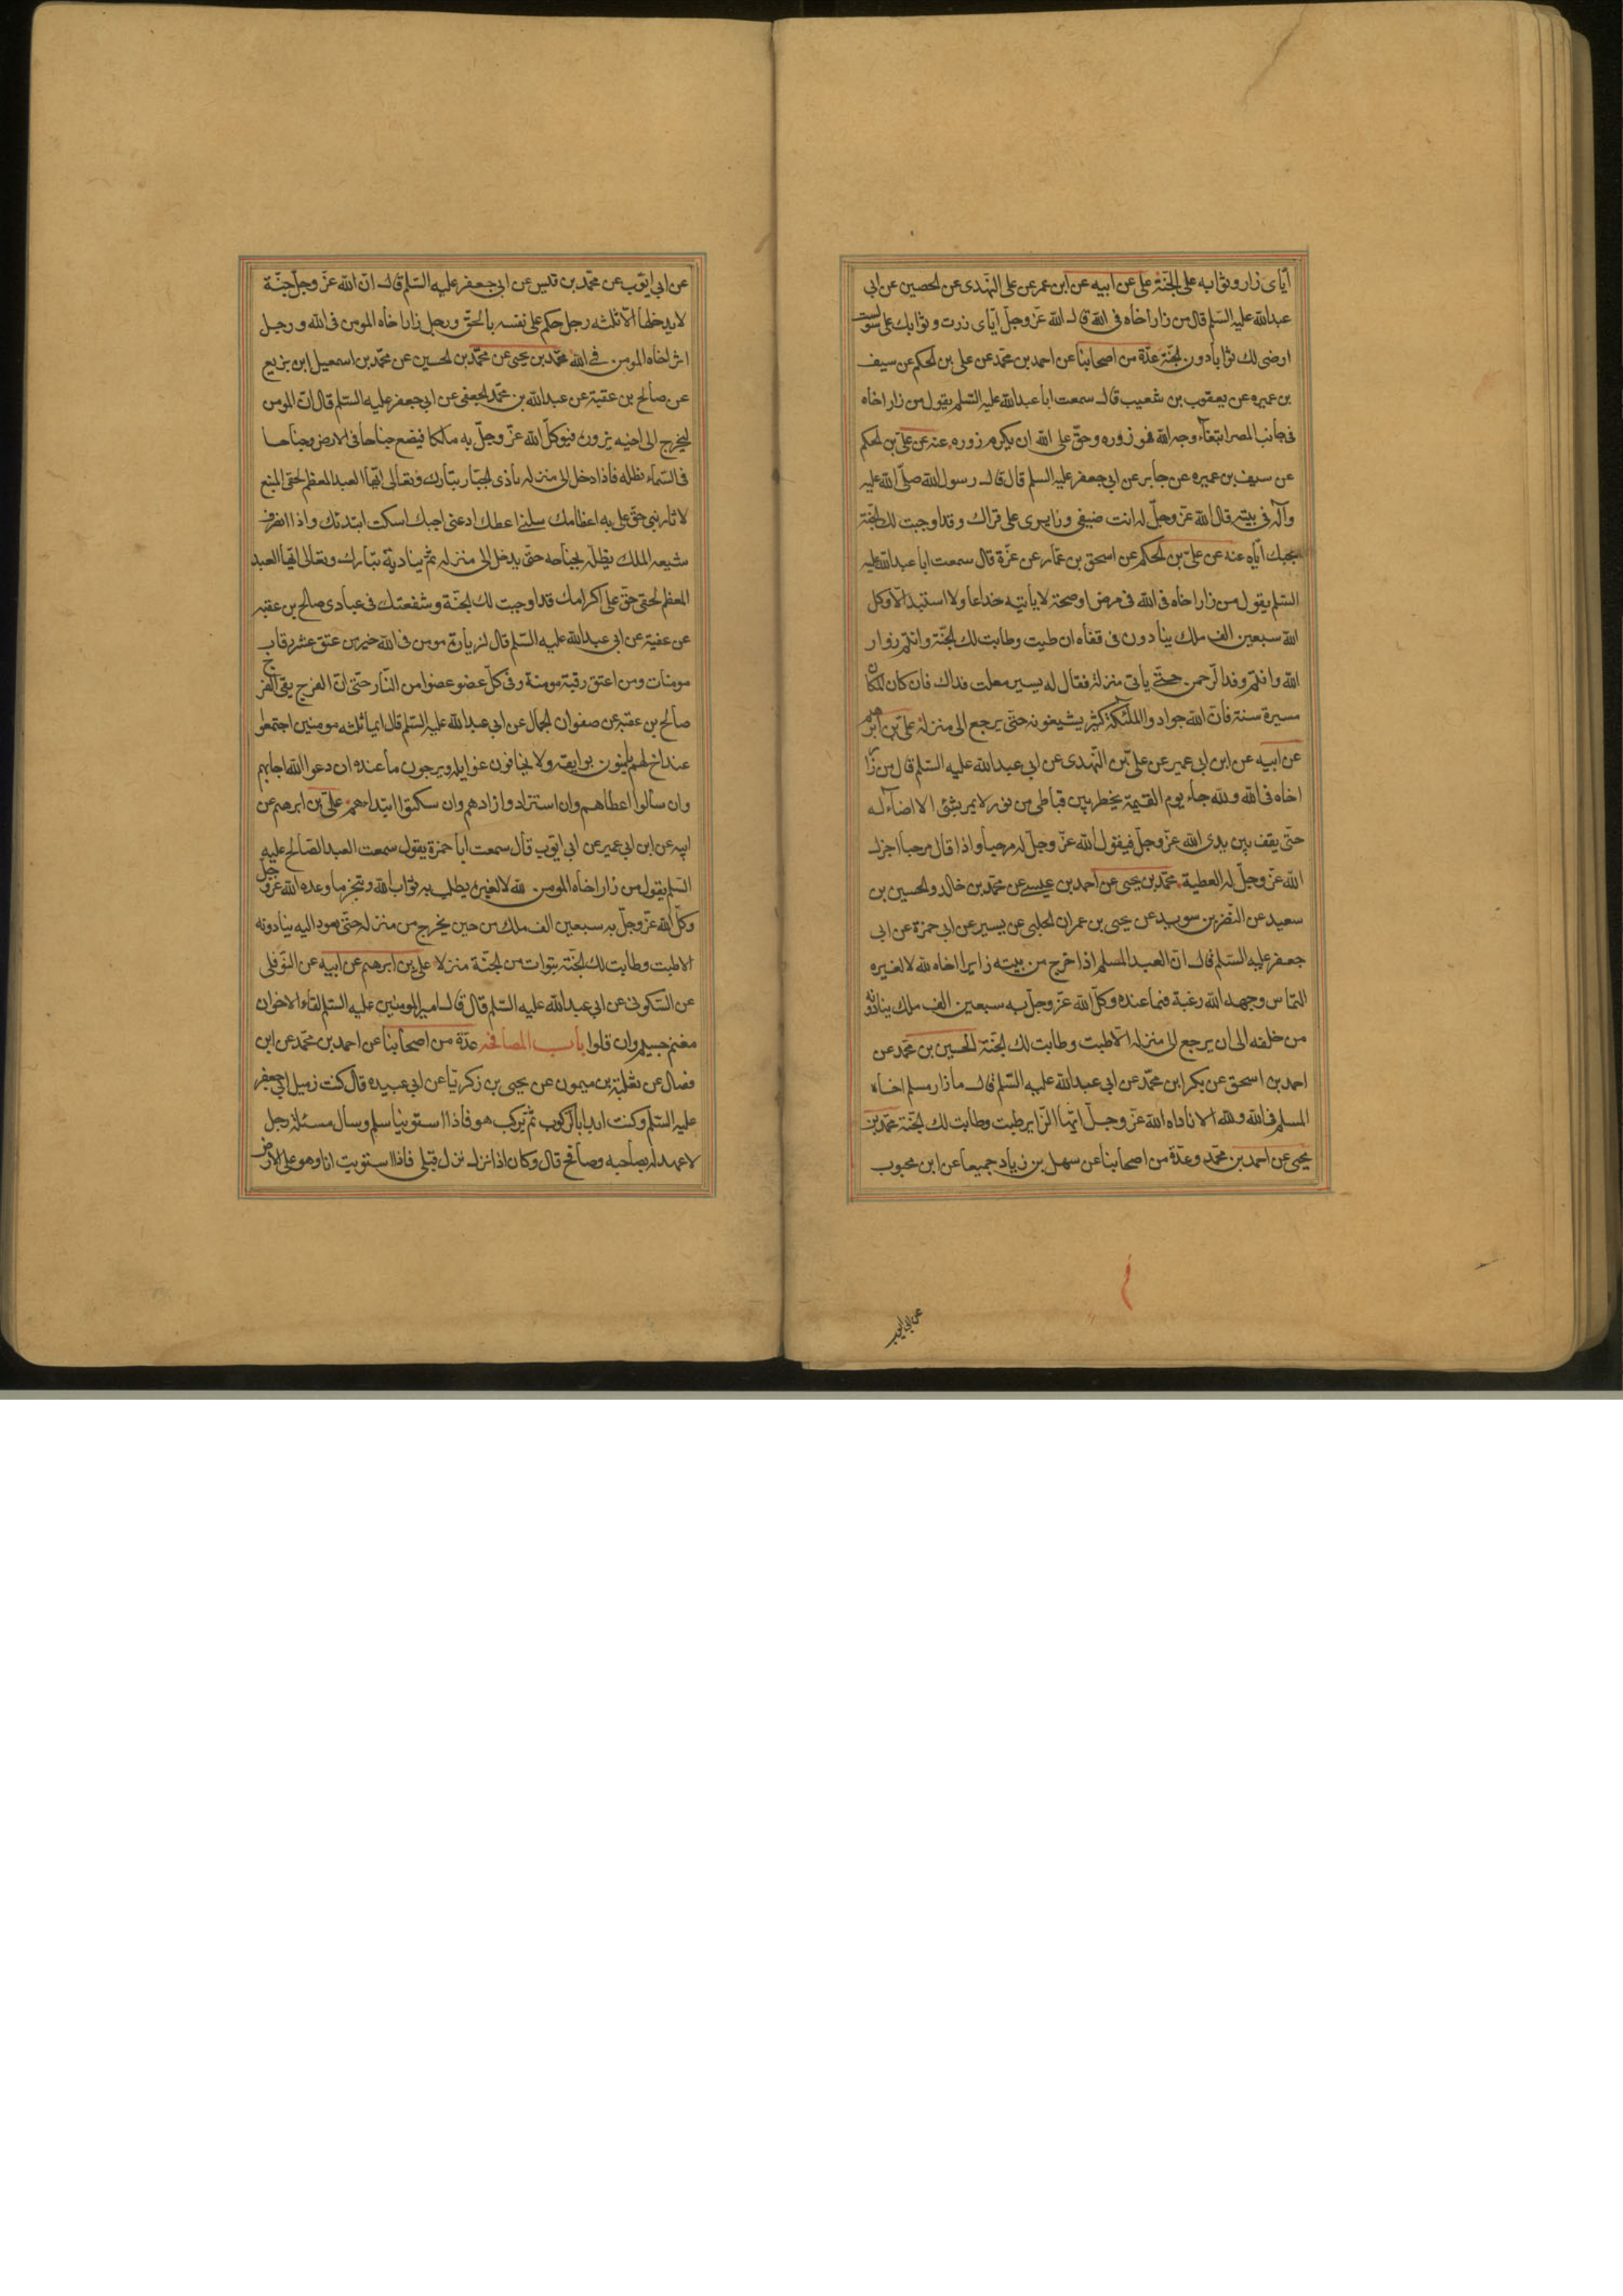 اياى زار وثوابه على الجنّة على عن ابيه عن ابن عمر عن على النهدى عن الحصين عن ابى
عبدالله عليه السّلم قال من زار اخاه فى الله قال الله عزّ وجلّ اياى زرت وثوابك علىّ ولست
ارضى لك ثوابا دون الجنّة عدّة من اصحابنا عن احمد بن محمّد عن على بن الحكم عن سيف
بن عميره عن يعقوب بن شعيب قال سمعت ابا عبدالله عليه السّلم يقول من زار اخاه
فى جانب المصر ابتغاء وجه الله فهو زوره وحقّ على الله ان يكرم زوره عنه عن علىّ بن الحكم
عن سيف بن عميره عن جابر عن ابى جعفر عليه السلم قال قال رسول الله صلّى الله عليه
وآله فى بيته قال الله عزّ وجلّ له انت ضيفى وزايرى على قراك وقد اوجبت لك الجنّة
بحبك ايّاه عنه عن علىّ بن الحكم عن اسحق بن عمّار عن عزّة قال سمعت ابا عبدالله عليه
السّلم يقول من زار اخاه فى الله فى مرض او صحة لا ياتيه خداعا ولا استبدالا وكل
الله سبعين الف ملك ينادون فى قفاه ان طبت وطابت لك الجنّة وانتم زوار
الله وانتم وفد الرّحمن حتّى ياتى منزله فقال له يسير جعلت فداك فان كان المكان
مسيرة سنة فانّ الله جواد والملئكة كثير يشيعونه حتّى يرجع الى منزله علىّ بن ابرهيم
عن ابيه عن ابن ابى عمير عن علىّ بن النّهدى عن ابى عبدالله عليه السّلم قال من زار
اخاه فى الله ولله جاء يوم القيمة يخطر بين قباطى من نور لا يمر بشئ الا اضاء له
حتّى يقف بين يدى الله عزّ وجلّ فيقول الله عزّ وجلّ له مرحبا واذا قال مرحبا اجزل
الله عزّ وجلّ له العطية محمّد بن يحيى عن احمد بن عيسى عن محمّد بن خالد والحسين بن
سعيد عن النّضر بن سويد عن يحيى بن عمران الحلبى عن يسير عن ابى حمزة عن ابى
جعفر عليه السّلم قال انّ العبد المسلم اذا خرج من بيته زايرا اخاه لله لا لغيره
التماس وجه الله رغبة فيما عنده وكلّ الله عزّ وجلّ به سبعين الف ملك ينادونه
من خلفه الى ان يرجع الى منزله الا طبت وطابت لك الجنّة الحسين بن محمّد عن
احمد بن اسحق عن بكر ابن محمّد عن ابى عبدالله عليه السّلم قال ما زار مسلم اخاه
المسلم فى الله ولله الا ناداه الله عزّ وجلّ ايّها الزّاير طبت وطابت لك الجنّة محمّد بن
يحيى عن احمد بن محمّد وعدّة من اصحابنا عن سهل بن زياد جميعا عن ابن محبوب
عن ابى ايوب
عن ابى ايّوب عن محمّد بن قيس عن ابى جعفر عليه السّلم قال انّ الله عزّ وجلّ جنّة
لا يدخلها الّا ثلثه رجل حكم على نفسه بالحقّ ورجل زار اخاه المومن فى الله ورجل
اثر اخاه المومن فى الله محمّد بن يحيى عن محمّد بن الحسين عن محمّد بن اسمعيل ابن بزيع
عن صالح بن عقبة عن عبدالله بن محمّد الجعفى عن ابى جعفر عليه السّلم قال انّ المومن
ليخرج الى اخيه يزوره فيوكلّ الله عزّ وجلّ به ملكا فيضع جناحا فى الارض وجناحا
فى السّماء يظله فاذا دخل الى منزله نادى الجبّار تبارك وتعالى ايّها العبد المعظم لحقى المتبع
لاثار نبيى حقّ علىّ اعظامك سلنى اعطك ادعنى اجبك اسكت ابتدئك واذا انصرف
شيعه الملك يظلّه بجناحه حتّى يدخل الى منزله ثم يناديه تبارك وتعالى ايّها العبد
المعظم لحقى حقّ علىّ اكرامك قد اوجبت لك الجنّة وشفعتك فى عبادى صالح بن عقبه
عن عقبة عن ابى عبدالله عليه السّلم قال لزيارة مومن فى الله خير من عتق عشر رقاب
مومنات ومن اعتق رقبة مومنة وقى كلّ عضو عضوا من النّار حتّى انّ الفرج يقى الفرج
صالح بن عقبه عن صفوان الجمال عن ابى عبدالله عليه السّلم قال ايما ثلثه مومنين اجتمعوا
عند اخ لهم يامنون بوايقه ولا يخافون غوايله ويرجون ما عنده ان دعوا الله اجابهم
وان سألوا اعطاهم وان استزادوا زادهم وان سكتوا ابتداءهم علىّ بن ابرهيم عن
ابيه عن ابن ابى عمير عن ابى ايّوب قال سمعت ابا حمزة يقول سمعت العبد الصّالح عليه
السّلم يقول من زار اخاه المومن لله لا لغيره يطلب به ثواب الله وتنجز ما وعده الله عزّ وجلّ
وكلّ الله عزّ وجلّ به سبعين الف ملك من حين يخرج من منزله حتّى يعود اليه ينادونه
الا طبت وطابت لك الجنّة تبوات من الجنّة منزلا على بن ابرهيم عن ابيه عن النّوفلى
عن السّكونى عن ابى عبدالله عليه السّلم قال قال امير المومنين عليه السّلم لقاء الاخوان
مغنم جسيم وان قلوا باب المصافحه عدّة من اصحابنا عن احمد بن محمّد عن ابن
فضال عن ثعلبة بن ميمون عن يحيى بن زكريّا عن ابى عبيده قال كنت زميل ابى جعفر
عليه السّلم وكنت ابدا بالرّكوب ثمّ يركب هو فاذا استوينا سلم وسأل مسئلة رجل
لا عهد له بصاحبه وصافح قال وكان اذا نزل نزل قبلى فاذا استويت انا وهو على الارض